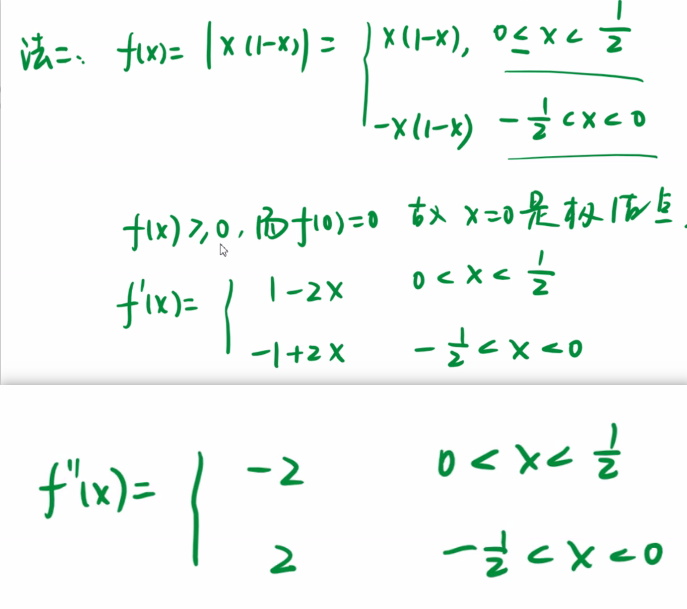 法二、 f(x)= |x(1-x)| = { x(1-x), 0≤x<1/2
-x(1-x) -1/2<x<0
f(x)≥0, 而f(0)=0 故 x=0是极值点.
f'(x)= { 1-2x 0<x<1/2
-1+2x -1/2<x<0
f''(x)= { -2 0<x<1/2
2 -1/2<x<0